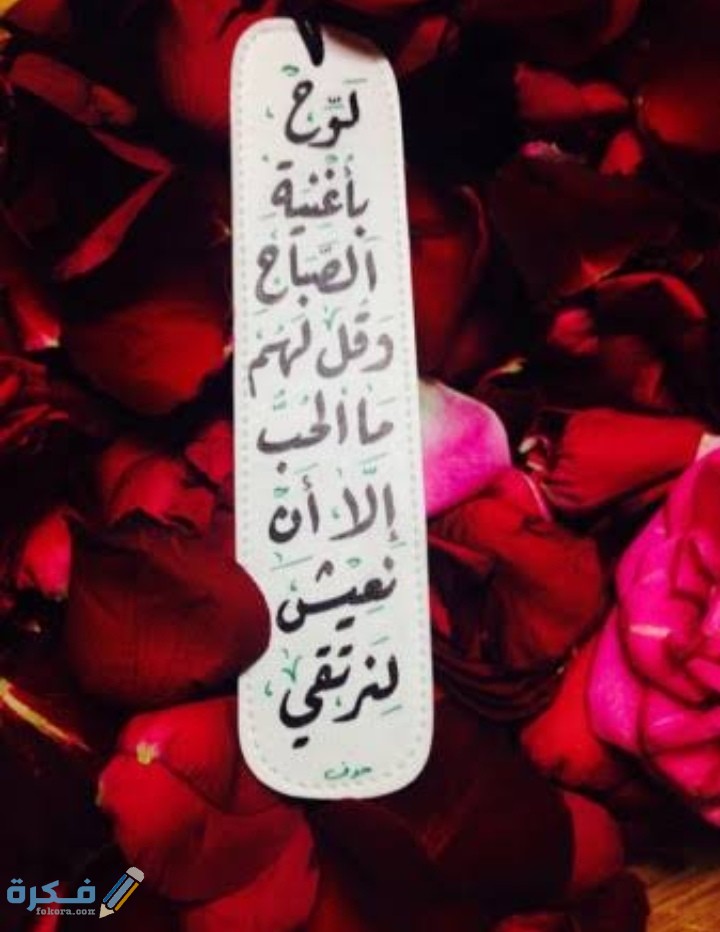 لَوِّحْ
بأُغْنِيَةِ
اَلصَّبَاحِ
وَقُلْ لَهُمْ
مَا اَلحُبُّ
إِلَّا أَنْ
نَعِيْشَ
لِنَرتَقي
حرف
فكرة
fekera.com